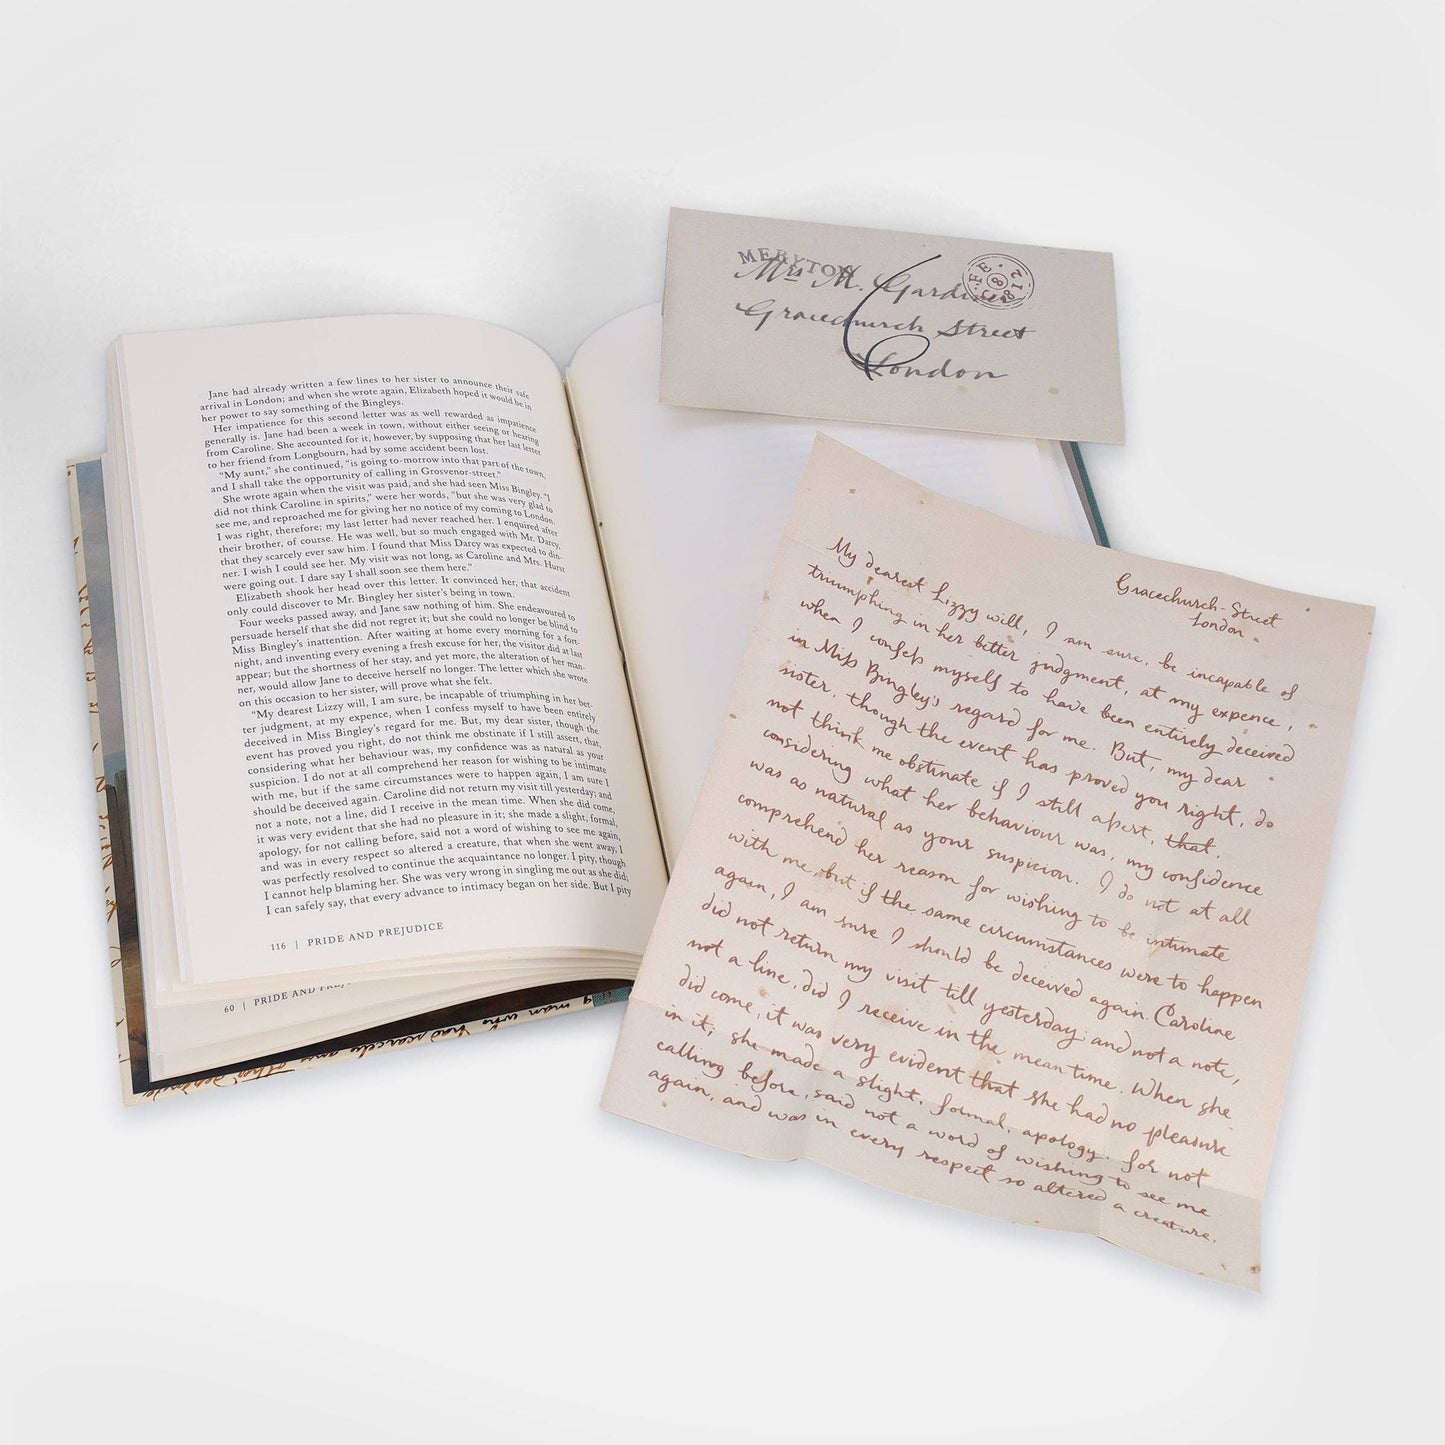 Jane had already written a few lines to her sister to announce their safe
arrival in London; and when she wrote again, Elizabeth hoped it would be in
her power to say something of the Bingleys.
Her impatience for this second letter was as well rewarded as impatience
generally is. Jane had been a week in town, without either seeing or hearing
from Caroline. She accounted for it, however, by supposing that her last letter
to her friend from Longbourn, had by some accident been lost.
"My aunt," she continued, "is going to-morrow into that part of the town,
and I shall take the opportunity of calling in Grosvenor-street."
She wrote again when the visit was paid, and she had seen Miss Bingley. "I
did not think Caroline in spirits," were her words, "but she was very glad to
see me, and reproached me for giving her no notice of my coming to London.
I was right, therefore; my last letter had never reached her. I enquired after
their brother, of course. He was well, but so much engaged with Mr. Darcy,
that they scarcely ever saw him. I found that Miss Darcy was expected to din-
ner. I wish I could see her. My visit was not long, as Caroline and Mrs. Hurst
were going out. I dare say I shall soon see them here."
Elizabeth shook her head over this letter. It convinced her, that accident
only could discover to Mr. Bingley her sister's being in town.
Four weeks passed away, and Jane saw nothing of him. She endeavoured to
persuade herself that she did not regret it; but she could no longer be blind to
Miss Bingley's inattention. After waiting at home every morning for a fort-
night, and inventing every evening a fresh excuse for her, the visitor did at last
appear; but the shortness of her stay, and yet more, the alteration of her man-
ner, would allow Jane to deceive herself no longer. The letter which she wrote
on this occasion to her sister, will prove what she felt.
"My dearest Lizzy will, I am sure, be incapable of triumphing in her bet-
ter judgment, at my expence, when I confess myself to have been entirely
deceived in Miss Bingley's regard for me. But, my dear sister, though the
event has proved you right, do not think me obstinate if I still assert, that,
considering what her behaviour was, my confidence was as natural as your
suspicion. I do not at all comprehend her reason for wishing to be intimate
with me, but if the same circumstances were to happen again, I am sure I
should be deceived again. Caroline did not return my visit till yesterday; and
not a note, not a line, did I receive in the mean time. When she did come,
it was very evident that she had no pleasure in it; she made a slight, formal,
apology, for not calling before, said not a word of wishing to see me again,
and was in every respect so altered a creature, that when she went away, I
was perfectly resolved to continue the acquaintance no longer. I pity, though
I cannot help blaming her. She was very wrong in singling me out as she did;
I can safely say, that every advance to intimacy began on her side. But I pity
116 | PRIDE AND PREJUDICE
60 | PRIDE AND PREJU
man who had scarcely any other
MERYTON
FE 12
88
1813
Mrs M. Gardiner
Gracechurch Street
London
Gracechurch-Street
London
My dearest Lizzy will, I am sure, be incapable of
triumphing in her better judgment, at my expence,
when I confess myself to have been entirely deceived
in Miss Bingley's regard for me. But, my dear
sister, though the event has proved you right, do
not think me obstinate if I still assert, that,
considering what her behaviour was, my confidence
was as natural as your suspicion. I do not at all
comprehend her reason for wishing to be intimate
with me, but if the same circumstances were to happen
again, I am sure I should be deceived again. Caroline
did not return my visit till yesterday; and not a note,
not a line, did I receive in the mean time. When she
did come, it was very evident that she had no pleasure
in it; she made a slight, formal, apology, for not
calling before, said not a word of wishing to see me
again, and was in every respect so altered a creature,